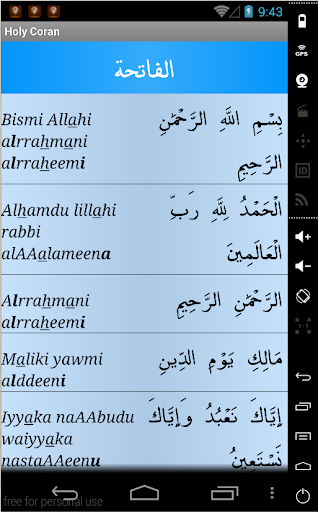 9:43
Holy Coran
GPS
الفاتحة
Bismi Allahi
alrrahmani
alrraheemi
بِسْمِ اللَّهِ الرَّحْمَٰنِ
الرَّحِيمِ
Alhamdu lillahi
rabbi
alAAalameena
الْحَمْدُ لِلَّهِ رَبِّ
الْعَالَمِينَ
Alrrahmani
alrraheemi
الرَّحْمَٰنِ الرَّحِيمِ
Maliki yawmi
alddeeni
مَالِكِ يَوْمِ الدِّينِ
Iyyaka naAAbudu
waiyyaka
nastaAAeenu
إِيَّاكَ نَعْبُدُ وَإِيَّاكَ
نَسْتَعِينُ
ID
1:1
free for personal use